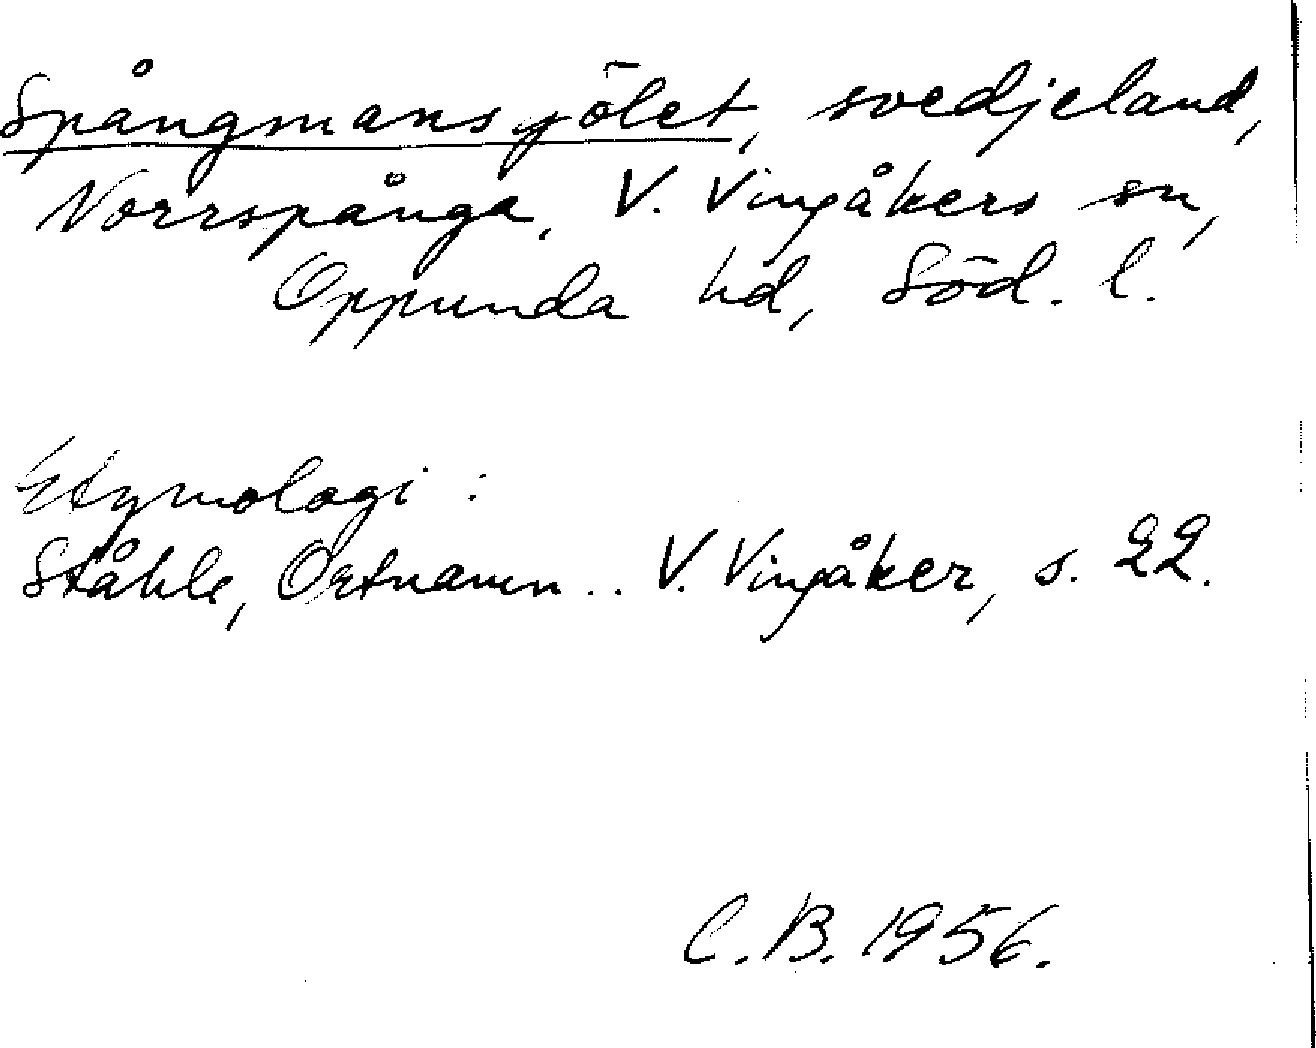 Spångmansjölet, svedjeland,
Norrspånga, V. Vingåkers sn,
Oppunda hd, Söd. l.
Etymologi:
Ståhle, Ortnamn .. V. Vingåker, s. 22.
C.B. 1956.